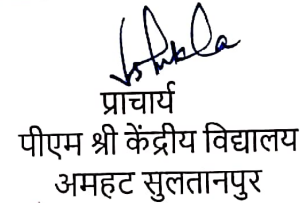 प्राचार्य
पीएम श्री केंद्रीय विद्यालय
अमहट सुलतानपुर